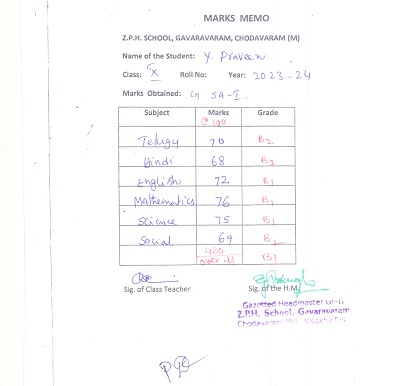 MARKS MEMO
Z.P.H. SCHOOL, GAVARAVARAM, CHODAVARAM (M)
Name of the Student: Y. Praveen
Class: X Roll No: Year: 2023-24
Marks Obtained: in SA-I.
Subject Marks Grade
@ 100
Telugu 70 B2
Hindi 68 B2
English 72 B1
Mathematics 76 B1
Science 75 B1
Social 69 B2
430
over all B1
Sig. of Class Teacher Sig. of the H.M.
Gazetted Headmaster Gr-II
Z.P.H. School, Gavaravaram
Chodavaram Mdl. Visakha